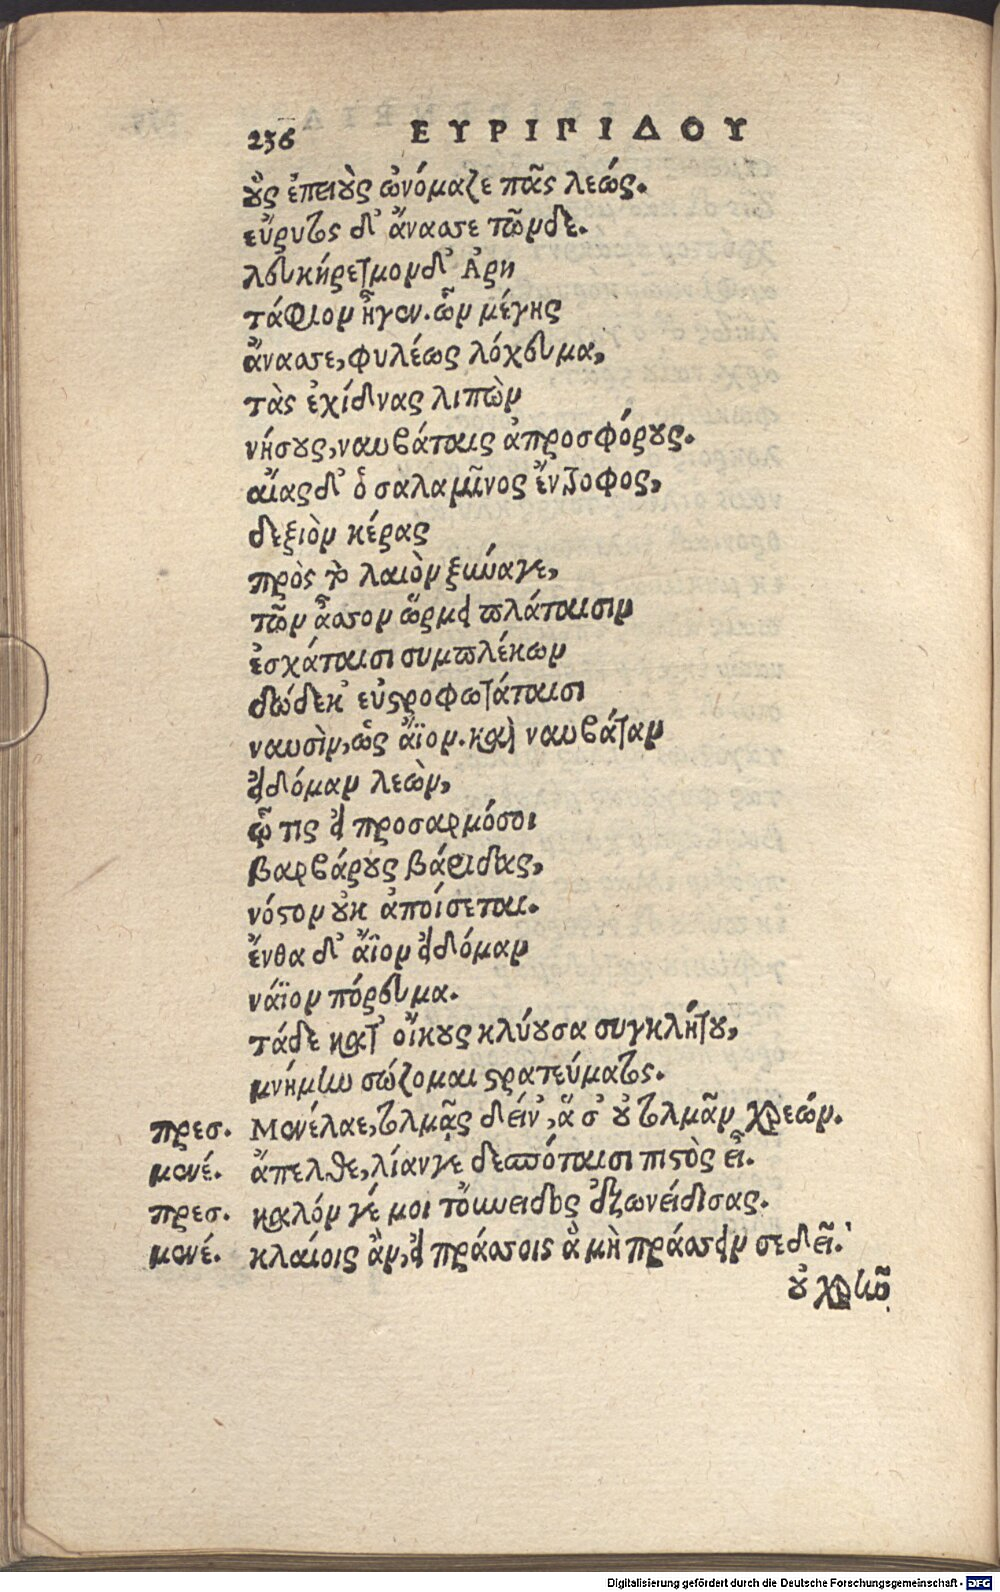 236 ΕΥΡΙΠΙΔΟΥ
οὓς ἐπειοὺς ὠνόμαζε πᾶς λεώς.
εὔρυτος δ' ἄνασσε τῶνδε.
λευκήρετμον δ' Ἄρη
τάφιον ἦγεν. ὧν μέγης
ἄνασσε, φυλέως λόχευμα,
τὰς ἐχίδνας λιπὼν
νήσους, ναυβάταις ἀπροσφόρους.
αἴας δ' ὁ σαλαμῖνος ἔντροφος,
δεξιὸν κέρας
πρὸς τὸ λαιὸν ξυνάγε,
τῶν ἆσσον ὥρμει πλάταισιν
ἐσχάταισι συμπλέκων
δώδεκ' εὐστροφωτάταισι
ναυσὶν, ὡς ἄϊον. καὶ ναυβάταν
εἰδόμαν λεὼν,
ᾧ τις εἰ προσαρμόσοι
βαρβάρους βάριδας,
νόστον οὐκ ἀποίσεται.
ἔνθα δ' ἄϊον εἰδόμαν
νάϊον πόρευμα.
τάδε κατ' οἴκους κλύουσα συγκλήτου,
μνήμην σώζομαι στρατεύματος.
πρεσ. Μενέλαε, τολμᾷς δείν', ἅ σ' οὐ τολμᾶν χρεών.
μενέ. ἄπελθε, λίαν γε δεσπόταισι πιστὸς εἶ.
πρεσ. καλόν γέ μοι τοὔνειδος ἐξωνείδισας.
μενέ. κλαίοις ἂν, εἰ πράσσοις ἃ μὴ πράσσειν σε δεῖ.
οὐ χρῆν
Digitalisierung gefördert durch die Deutsche Forschungsgemeinschaft - DFG